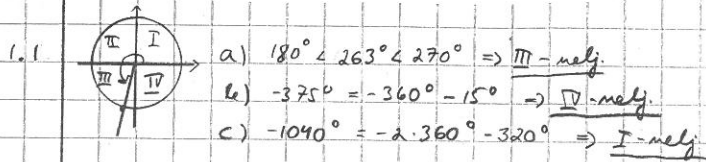 1.1
II I
III IV
a) 180° < 263° < 270° => III-nelj.
b) -375° = -360° - 15° => IV-nelj.
c) -1040° = -2·360° - 320° => I-nelj.